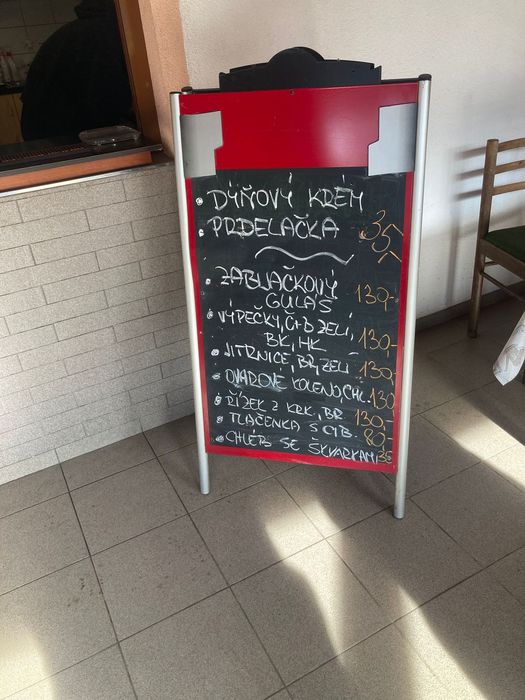 • DÝŇOVÝ KRÉM
• PRDELAČKA 35,-
• ZABIJAČKOVÝ
GULÁŠ 130,-
• VÝPEČKY, Č+B ZELÍ,
BK, HK 130,-
• JITRNICE, BR, ZELÍ 130,-
• OVAROVÉ KOLENO, CHL. 130
• ŘÍZEK Z KRK, BR. 130,-
• TLAČENKA S CIB. 80,-
• CHLÉB SE ŠKVARKAMI 35